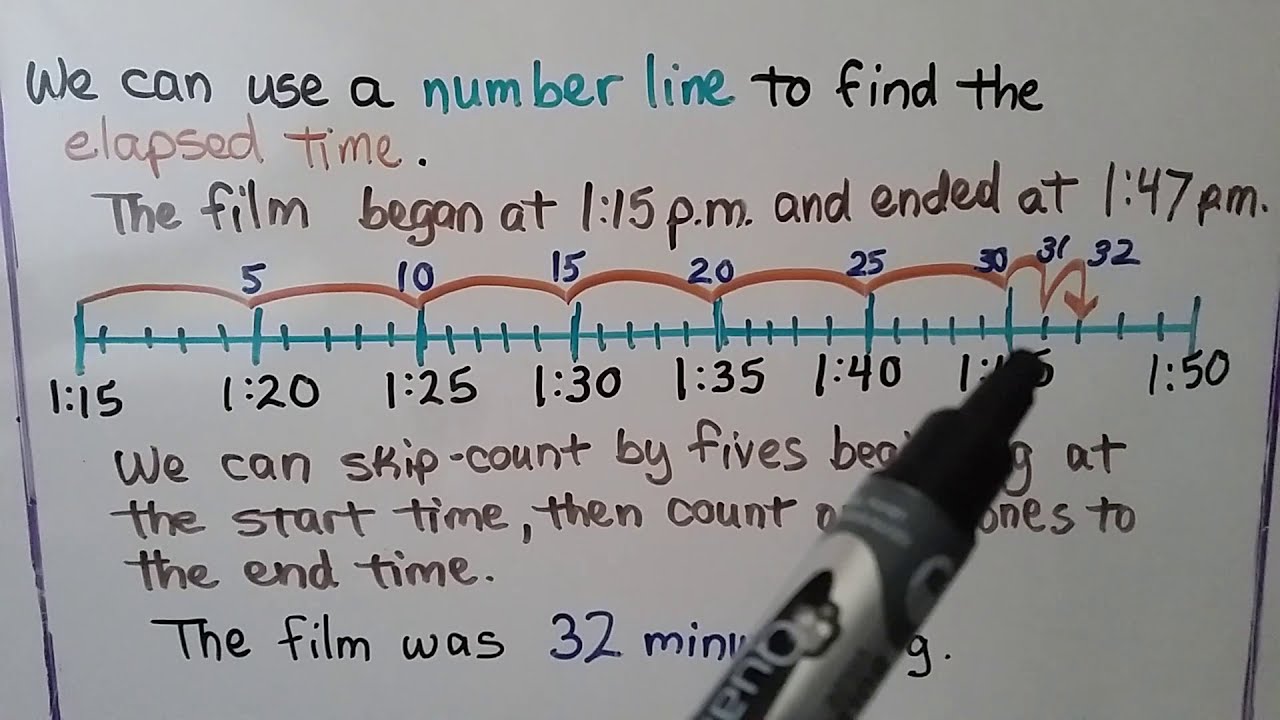 We can use a number line to find the
elapsed time.
The film began at 1:15 p.m. and ended at 1:47 pm.
5 10 15 20 25 30 31 32
1:15 1:20 1:25 1:30 1:35 1:40 1:50
We can skip-count by fives at
the start time, then count ones to
the end time.
The film was 32